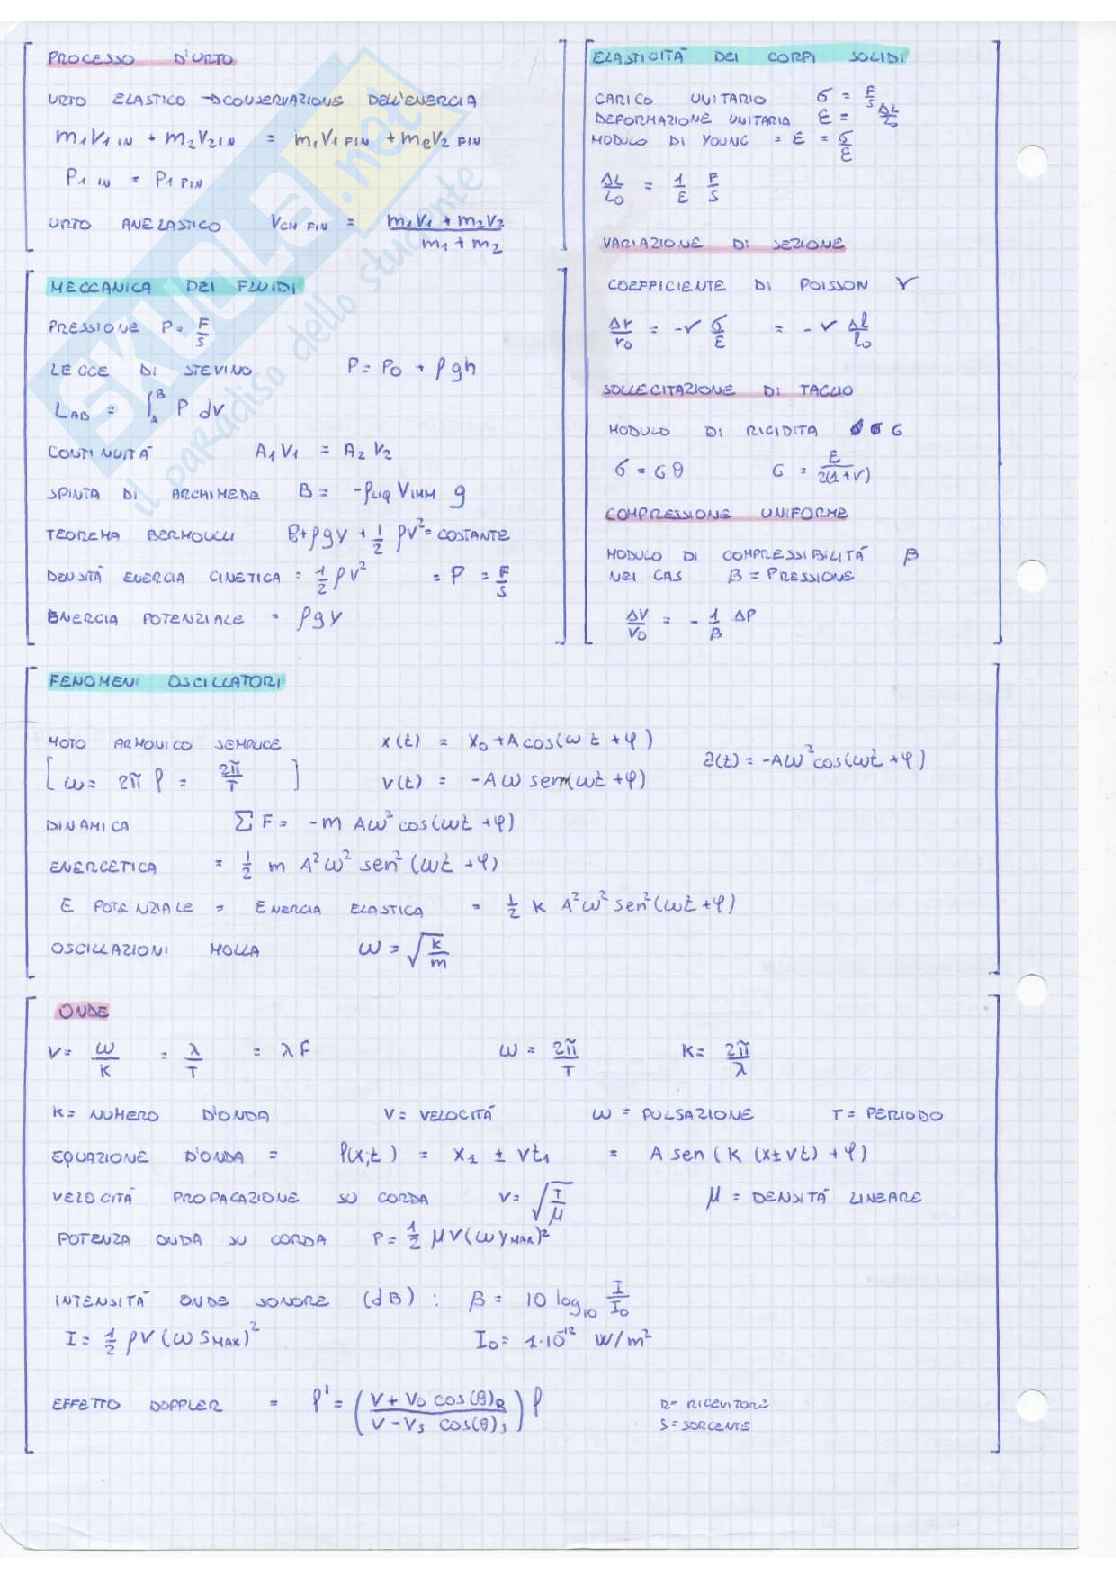 PROCESSO D'URTO
URTO ELASTICO → CONSERVAZIONE DELL'ENERGIA
m₁V₁ IN + m₂V₂ IN = m₁V₁ FIN + m₂V₂ FIN
P₁ IN = P₁ FIN
URTO ANELASTICO V CM FIN = (m₁V₁ + m₂V₂)/(m₁ + m₂)
MECCANICA DEI FLUIDI
PRESSIONE P = F/S
LEGGE DI STEVINO P = P₀ + ρgh
L_AB = ∫_A^B P dV
CONTINUITÀ A₁V₁ = A₂V₂
SPINTA DI ARCHIMEDE B = -ρ_LIQ V_IMM g
TEOREMA BERNOULLI P+ρgy + 1/2 ρV² = COSTANTE
DENSITÀ ENERGIA CINETICA = 1/2 ρV² = P = F/S
ENERGIA POTENZIALE = ρgy
ELASTICITÀ DEI CORPI SOLIDI
CARICO UNITARIO σ = F/S
DEFORMAZIONE UNITARIA ε = ΔL/L₀
MODULO DI YOUNG = E = σ/ε
ΔL/L₀ = 1/E F/S
VARIAZIONE DI SEZIONE
COEFFICIENTE DI POISSON ν
Δr/r₀ = -ν σ/E = -ν Δl/l₀
SOLLECITAZIONE DI TAGLIO
MODULO DI RIGIDITA G
σ = Gθ G = E/2(1+ν)
COMPRESSIONE UNIFORME
MODULO DI COMPRESSIBILITÀ β
NEI GAS β = PRESSIONE
ΔV/V₀ = - 1/β ΔP
FENOMENI OSCILLATORI
MOTO ARMONICO SEMPLICE x(t) = x₀ + A cos(ωt + φ)
[ω = 2π f = 2π/T] v(t) = -Aω sen(ωt + φ) a(t) = -Aω² cos(ωt + φ)
DINAMICA ΣF = -m Aω² cos(ωt + φ)
ENERGETICA = 1/2 m A²ω² sen²(ωt + φ)
E POTENZIALE = ENERGIA ELASTICA = 1/2 K A²ω² sen²(ωt + φ)
OSCILLAZIONI MOLLA ω = √(K/m)
ONDE
V = ω/K = λ/T = λ F ω = 2π/T K = 2π/λ
K = NUMERO D'ONDA V = VELOCITÀ ω = PULSAZIONE T = PERIODO
EQUAZIONE D'ONDA = f(x;t) = x₁ ± Vt₁ = A sen(K(x±vt) + φ)
VELOCITÀ PROPAGAZIONE SU CORDA V = √(T/μ) μ = DENSITÀ LINEARE
POTENZA ONDA SU CORDA P = 1/2 μV(ω y_MAX)²
INTENSITÀ ONDE SONORE (dB) : β = 10 log₁₀ I/I₀
I = 1/2 ρV(ω S_MAX)² I₀ = 1·10⁻¹² W/m²
EFFETTO DOPPLER = f' = ((V + V₀ cos(θ)_R)/(V - V_S cos(θ)_S)) f
R = RICEVITORE
S = SORGENTE
SKUOLA.net
il paradiso dello studente